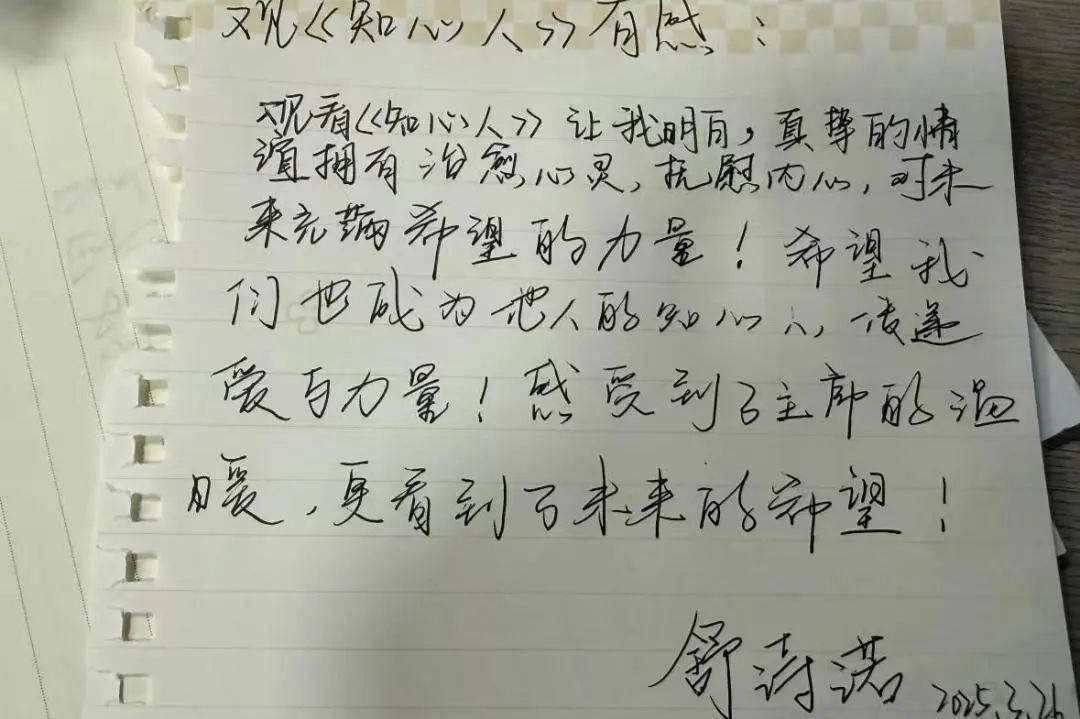 观《知心人》有感:
观看《知心人》让我明白,真挚的情
谊拥有治愈心灵,抚慰内心,对未
来充满希望的力量!希望我
们也成为他人的知心人,传递
爱与力量!感受到了主帅的温
暖,更看到了未来的希望!
舒诗诺 2025.3.26